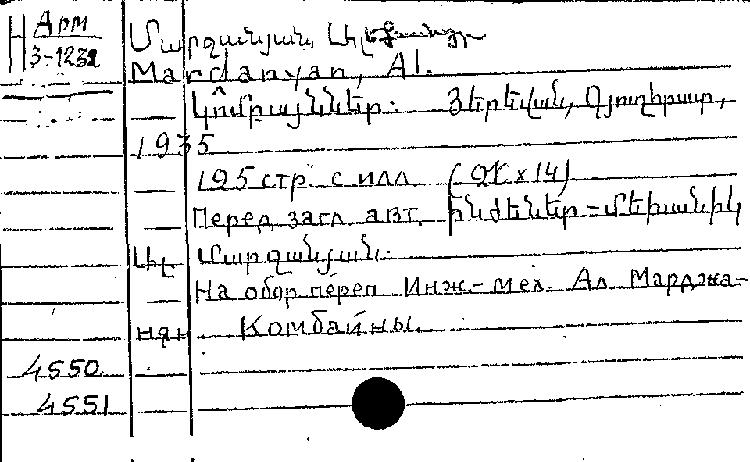 Арм
3-1232
Մարջանյան, Ալեքսանդր
Mardanyan, Al.
Կոմբայններ. Յերեվան, Գյուղհրատ,
1935
195 стр. с илл. (21 x 14)
Перед. загл. авт. ինժեներ-մեխանիկ
Ալ. Մարջանյան.
На обор. переп. Инж.-мех. Ал. Марджа-
нян. Комбайны.
4550
4551